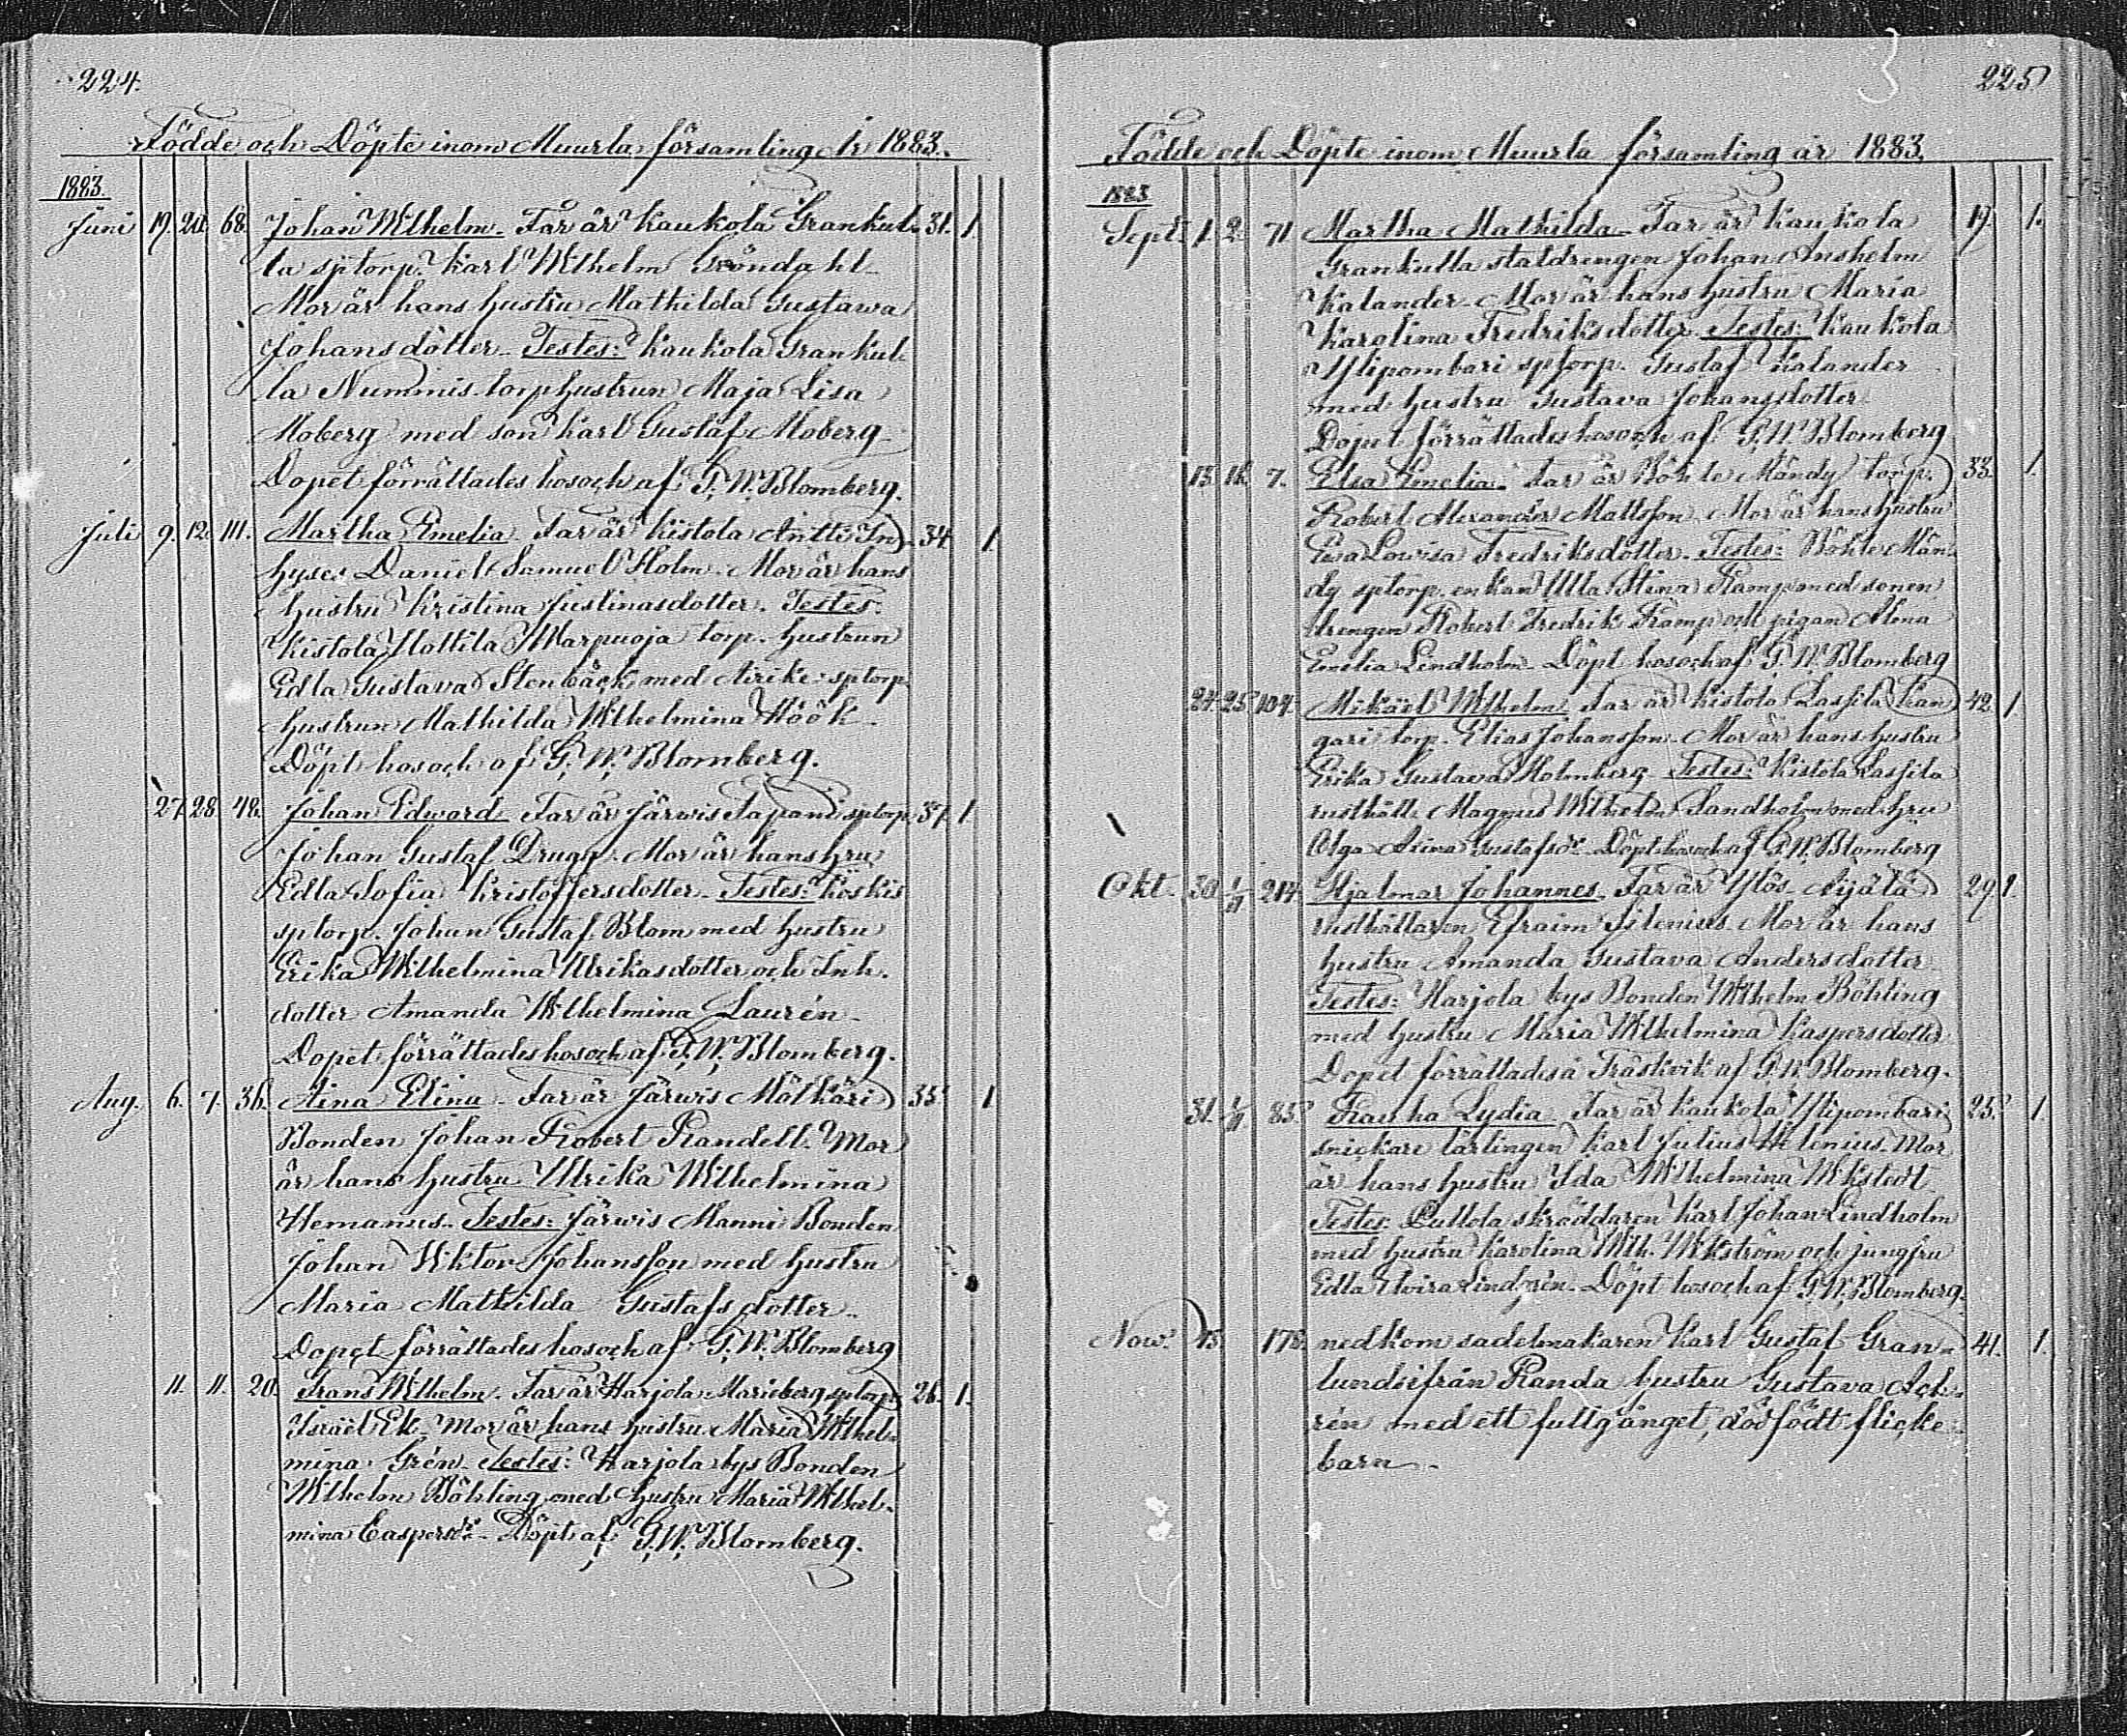 224.
Födde och Döpte inom Muurla församling År 1883.
1883.
Juni 19. 20. 68. Johan Wilhelm. Far är Kaukola Grankul- 31. 1.
la sptorp. Karl Wilhelm Gröndahl
Mor är hans hustru Mathilda Gustawa
Johansdotter. Testes: Kaukola Grankul-
la Nummis torphustrun Maja Lisa
Moberg med son Karl Gustaf Moberg
Dopet förrättades hos och af G. W. Blomberg.
Juli 9. 12. 111. Martha Emelia. Far är Kistola Antti In- 34. 1.
hyses Daniel Samuel Holm. Mor är hans
hustru Kristina Justinasdotter. Testes:
Kistola Hottila Warpuoja torp. hustrun
Edla Gustava Stenbäck med sptorp.
hustrun Mathilda Wilhelmina Höök
Döpt hos och af G. W. Blomberg.
27. 28. 48. Johan Edward. Far är Järwis Tapani sptorp. 37. 1
Johan Gustaf Drugg. Mor är hans hru
Edla Sofia Kristoffersdotter. Testes: Koskis
sptorp. Johan Gustaf Blom med hustru
Erika Wilhelmina Ulrikasdotter och Inh.
dotter Amanda Wilhelmina Laurén
Dopet förrättades hos och af G. W. Blomberg.
Aug. 6. 7. 36. Aina Elina. Far är Järwis Mölkäri 35. 1
Bonden Johan Robert Randell. Mor
är hans hustru Ulrika Wilhelmina
Hemanus. Testes: Järwis Manni Bonden
Johan Wiktor Johansson med hustru
Maria Mathilda Gustafsdotter.
Dopet förrättades hos och af G. W. Blomberg
11. 11. 20. Frans Wilhelm. Far är Harjola Marieberg sptorp. 26. 1.
Israël Ek. Mor är hans hustru Maria Wilhel-
mina Grén. Testes: Harjola bys Bonden
Wilhelm Böhling med hustru Maria Wilhel-
mina Caspersdr. Döpt af G. W. Blomberg.
225
Födde och Döpte inom Muurla församling år 1883.
1883
Sept. 1. 2. 71 Martha Mathilda. Far är Kaukola 19. 1.
Grankulla staldrengen Johan Anshelm
Kalander. Mor är hans hustru Maria
Karolina Fredriksdotter. Testes: Kaukola
Ylipombari sptorp. Gustaf Kalander
med hustru Gustava Johansdotter
Dopet förrättades hos och af G. W. Blomberg
13. 16. 7. Elsa Emelia. Far är Böhle Mändy torp. 33. 1.
Robert Alexander Mattsson. Mor är hans hustru
Eva Lowisa Fredriksdotter. Testes: Böhle Män-
dy sptorp. enkan Ulla Stina Ramp med sonen
drengen Robert Fredrik Ramp och pigan Alma
Emelia Lindholm. Döpt hos och af G. W. Blomberg
24. 25. 104. Mikäel Wilhelm. Far är Kistola Lassila Kan- 42. 1
gari torp. Elias Johansson. Mor är hans hustru
Erika Gustava Holmberg. Testes: Kistola Lassila
rusthåll. Magnus Wilhelm Sandholm med hru
Olga Aina Gustafsdr. Döpt hos och af G. W. Blomberg
Okt. 30. 1/11 214. Hjalmar Johannes. Far är Ylös Äijälä 29. 1.
rusthållaren Efraim Silenius. Mor är hans
hustru Amanda Gustava Andersdotter
Testes: Harjola bys Bonden Wilhelm Böhling
med hustru Maria Wilhelmina Kaspersdotter
Dopet förrättades å Träskvik af G. W. Blomberg.
31. 1/11 85. Rauha Lydia. Far är Kaukola Ylipombari 25. 1.
snickare lärlingen Karl Julius Helenius. Mor
är hans hustru Ida Wilhelmina Wikstedt
Testes: Pullola skräddaren Karl Johan Lindholm
med hustru Karolina Wilh. Wikström och jungfru
Edla Elvira Lindgrén. Döpt hos och af G. W. Blomberg.
Now. 15. 178. nedkom sadelmakaren Karl Gustaf Gran- 41. 1.
lunds ifrån Randa hustru Gustava Ack-
rén med ett fullgånget, dödfödt flicke-
barn.